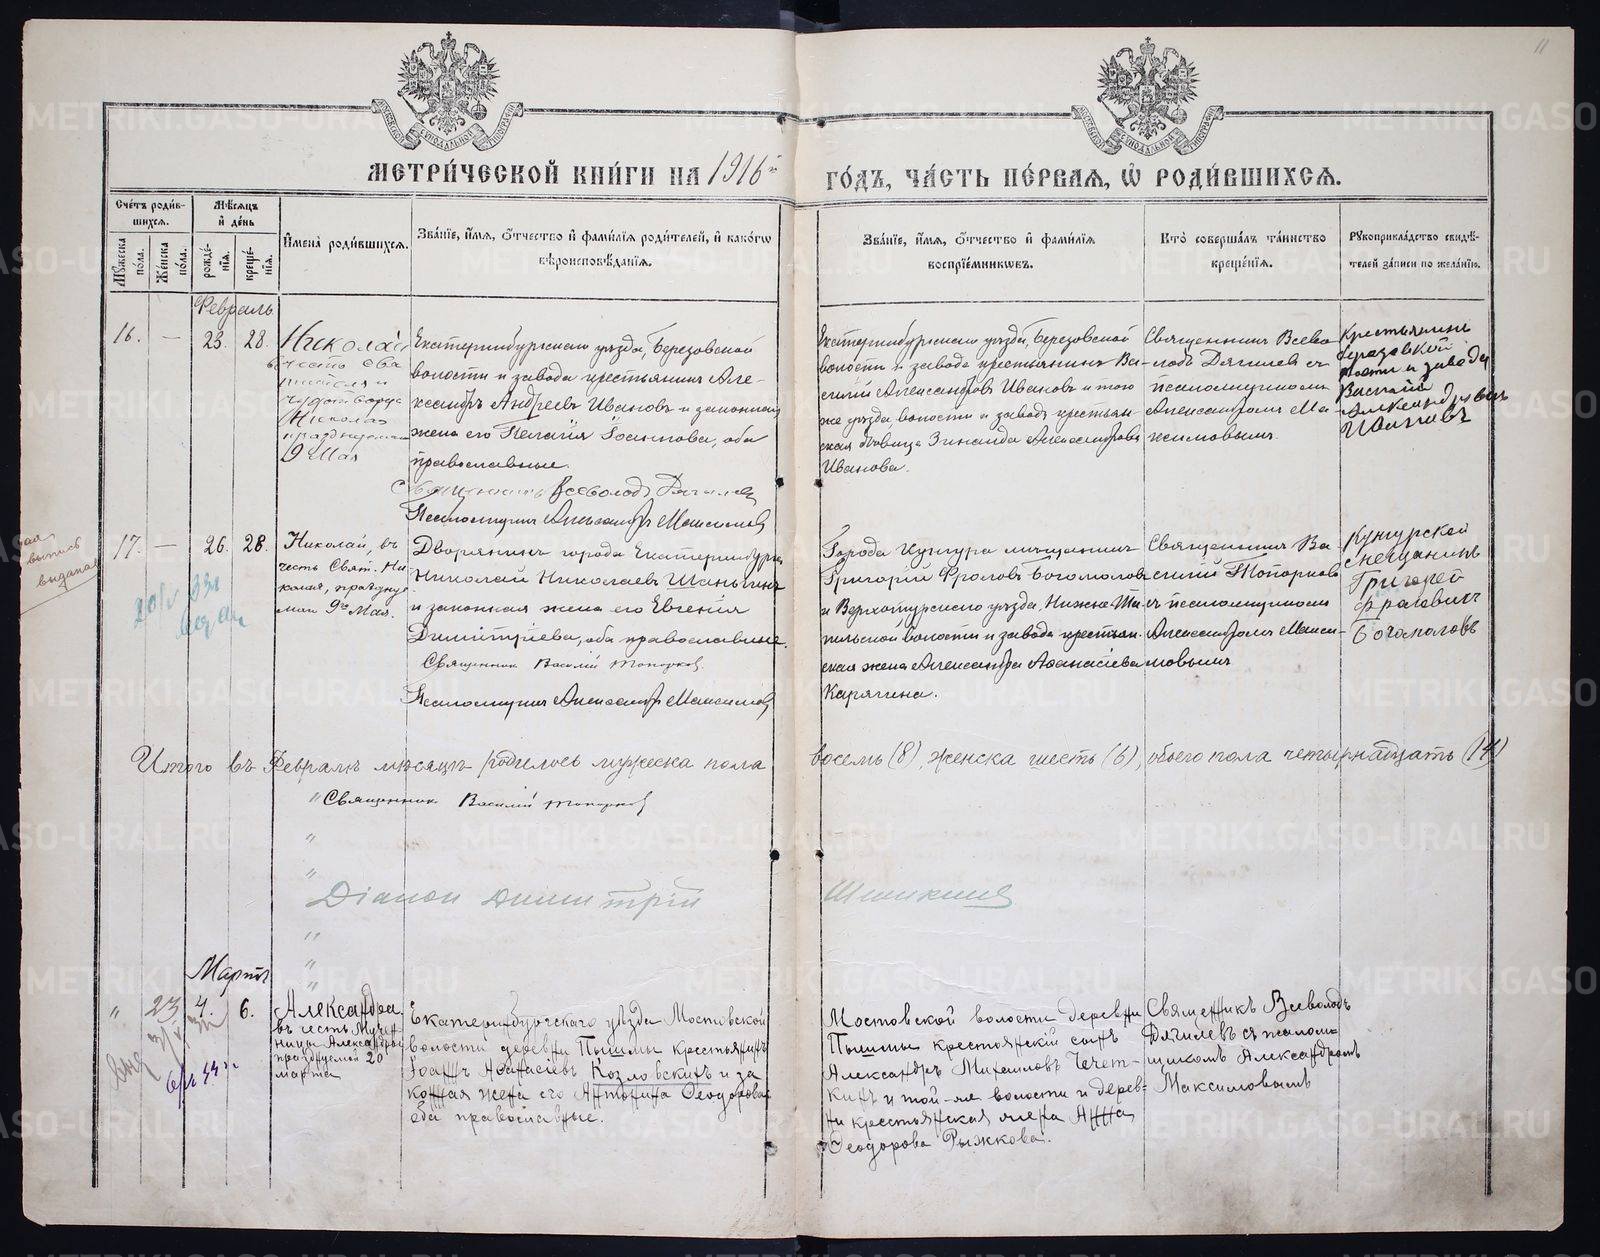 11
МЕТРИ́ЧЕСКОЙ КНИ́ГИ НА 1916й
ГО́ДЪ, ЧА́СТЬ ПЕ́РВАЯ, Ѿ РОДИ́ВШИХСЯ.
Сче́тъ роди́в-
шихся.
Мѣ́сяцъ
и҆ де́нь
Му́жеска по́ла.
Же́нска по́ла.
рожде́-
нїѧ.
креще́-
нїѧ.
И҆мена̀ роди́вшихся.
Зва́нїе, и҆́мя, ѻ҆́тчество и҆ фами́лїя роди́телей, и҆ како́гѡ
вѣроисповѣ́данїя.
Зва́нїе, и҆́мя, ѻ҆́тчество и҆ фами́лїя
воспрїе́мникѡвъ.
Кто̀ соверша́лъ та́инство
креще́нїя.
Рꙋкоприкла́дство свидѣ́-
телей за́писи по жела́нїю.
Февраль
16.
—
23.
28.
Николай
въ честь Свя
тителя и
Чудотворца
Николая
празднуемаго
9 Мая
Екатеринбургскаго уѣзда, Березовской
волости и завода крестьянинъ Але-
ксандръ Андреевъ Ивановъ и законная
жена его Пелагія Іоаннова, оба
православные.
Священникъ Всеволодъ Дягилевъ
Псаломщикъ Александръ Максимовъ
Екатеринбургскаго уѣзда, Березовской
волости и завода крестьянинъ Ва-
силій Александровъ Ивановъ и того
же уѣзда, волости и завода крестьян-
ская дѣвица Зинаида Александрова
Иванова.
Священникъ Всево-
лодъ Дягилевъ съ
псаломщикомъ
Александромъ Ма-
ксимовымъ.
Крестьянинъ
березовской
волости и завода
Василій
Александровъ
Ивановъ
17.
—
26.
28.
выпись
выдана
Николай, въ
честь Свят. Ни-
колая, праздну-
емаго 9го Мая.
Дворянинъ города Екатеринбурга
Николай Николаевъ Шаньгинъ
и законная жена его Евгенія
Димитріева, оба православные.
Священникъ Василій Топорковъ.
Псаломщикъ Александръ Максимовъ
Города Кунгура мѣщанинъ
Григорій Фроловъ Богомоловъ
и Верхотурскаго уѣзда, Нижне-Та-
гильской волости и завода крестьян-
ская жена Александра Аѳанасіева
Карягина.
Священникъ Ва-
силій Топорковъ
съ псаломщикомъ
Александромъ Макси-
мовымъ
Кунгурской
Мещанинъ
Григорей
Фраловичъ
Богамоловъ
Итого въ Февралѣ мѣсяцѣ родилось мужеска пола восемь (8), женска шесть (6), обоего пола четырнадцать (14)
Священникъ Василій Топорковъ
Діакон Димитрій Шишкинъ
Мартъ
"
23
4.
6.
Александра
въ честь Муче-
ницы Александры
празднуемой 20
марта
Екатеринбургскаго уѣзда Мостовской
волости деревни Пышмы крестьянинъ
Іоаннъ Аѳанасіевъ Козловскихъ и за
конная жена его Антонина Ѳеодорова
оба православные.
Мостовской волости деревни
Пышмы крестьянскій сынъ
Александръ Михаиловъ Чечет-
кинъ и той-же волости и дерев-
ни крестьянская жена Анна
Ѳеодорова Рыжкова.
Священникъ Всеволодъ
Дягилевъ съ псалом-
щикомъ Александромъ
Максимовымъ